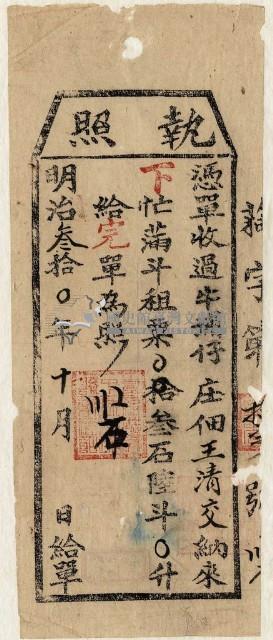 執照
字第
號
憑單收過牛 仔庄佃王清交納來
下忙滿斗租粟〇拾叁石陸斗〇升
給完單為照
明治叁拾〇年十月 日給單